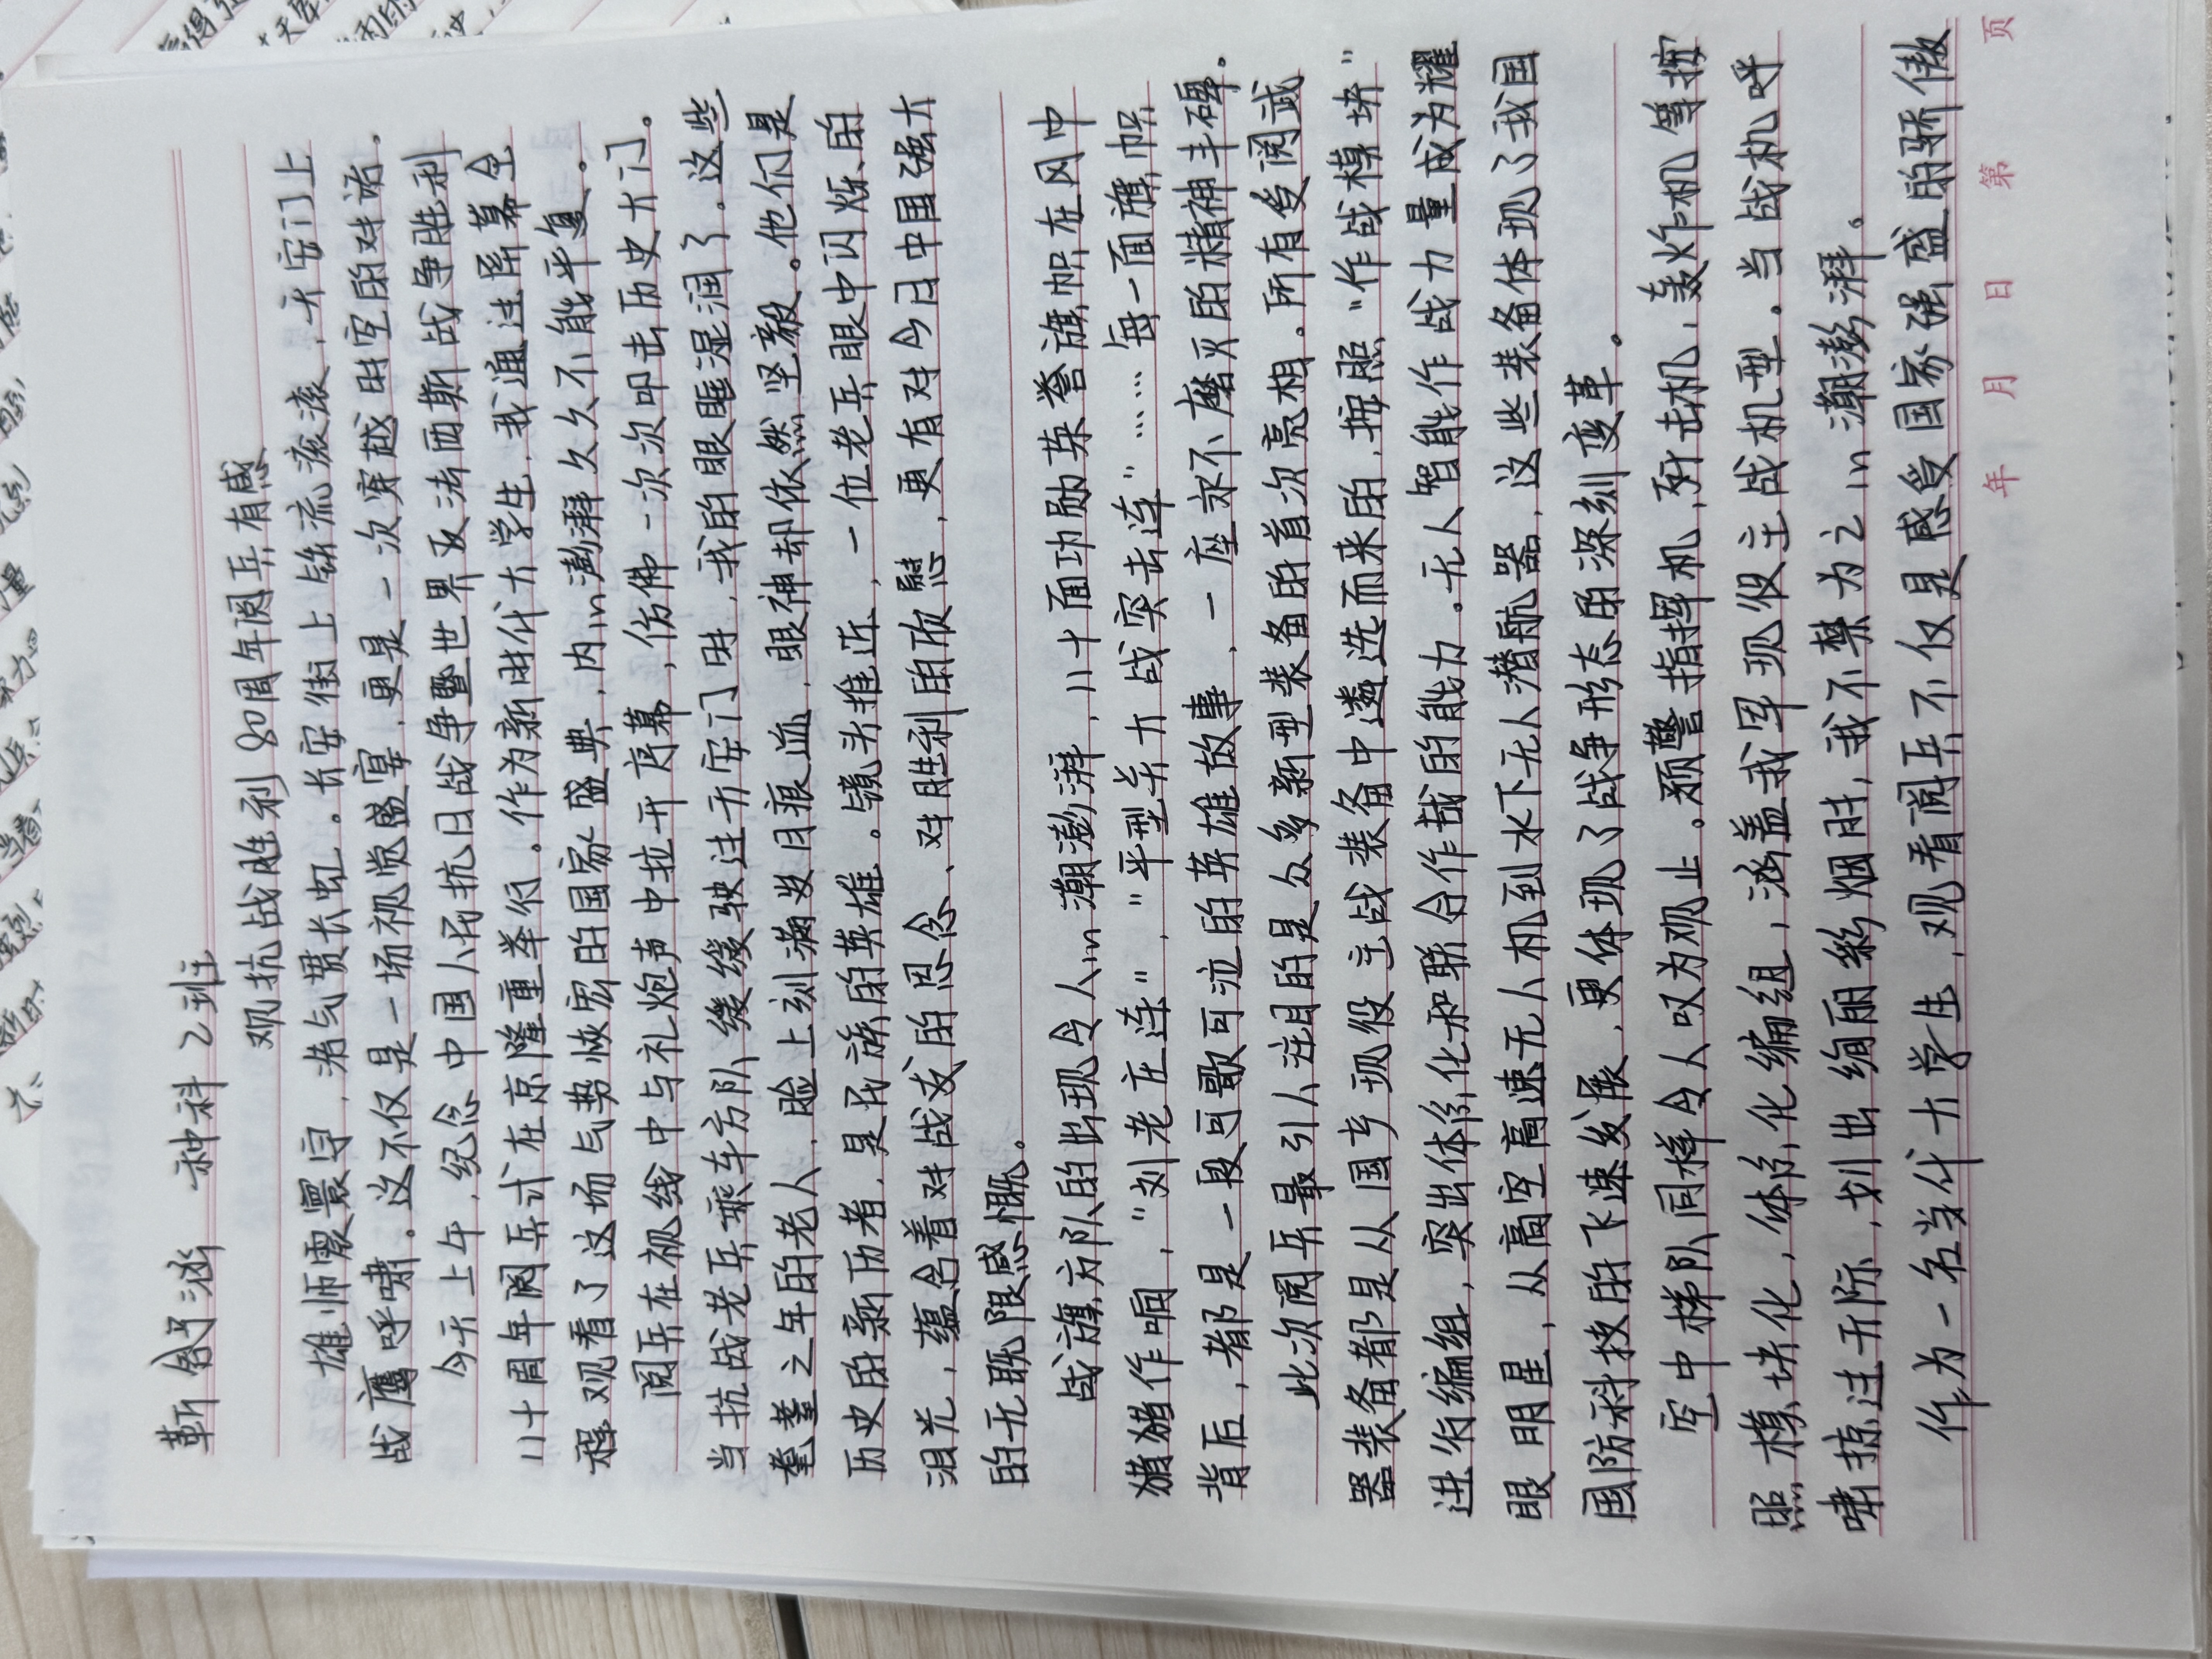 靳舒涵 种科2班
观抗战胜利80周年阅兵有感
雄师震寰宇，浩气贯长虹。长安街上铁流滚滚，天安门上
战鹰呼啸。这不仅是一场视觉盛宴，更是一次穿越时空的对话。
今天上午，纪念中国人民抗日战争暨世界反法西斯战争胜利
八十周年阅兵式在京隆重举行。作为新时代大学生，我通过屏幕全
程观看了这场气势恢宏的国家盛典，内心澎湃久久不能平复。
阅兵在视线中与礼炮声中拉开序幕，仿佛一次次叩击历史大门。
当抗战老兵乘车方队缓缓驶过天安门时，我的眼眶湿润了。这些
耄耋之年的老人，脸上刻满岁月痕迹，眼神却依然坚毅。他们是
历史的亲历者，是民族的英雄。镜头推近，一位老兵眼中闪烁的
泪光，蕴含着对战友的思念、对胜利的欣慰，更有对今日中国强大
的无限感慨。
战旗方队的出现令人心潮澎湃，八十面功勋荣誉旗帜在风中
猎猎作响，“刘老庄连”，“平型关大战突击连”……每一面旗帜
背后，都是一段可歌可泣的英雄故事，一座永不磨灭的精神丰碑。
此次阅兵最引人注目的是众多新型装备的首次亮相。所有受阅武
器装备都是从国产现役主战装备中遴选而来的，按照“作战模块”
进行编组，突出体系化和联合作战的能力。无人智能作战力量成为耀
眼明星，从高空高速无人机到水下无人潜航器，这些装备体现了我国
国防科技的飞速发展，更体现了战争形态的深刻变革。
空中梯队同样令人叹为观止。预警指挥机，歼击机，轰炸机等按
照模块化，体系化编组，涵盖我军现役主战机型。当战机呼
啸掠过天际，划出绚丽彩烟时，我不禁为之心潮澎湃。
作为一名当代大学生，观看阅兵不仅是感受国家强盛的骄傲
年 月 日 第 页